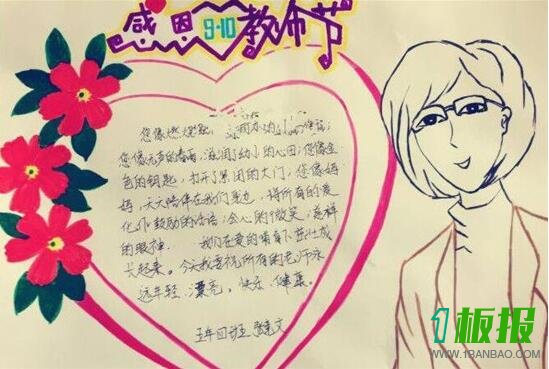 感恩 9·10 教师节
您像燃燃烛,
您像无声的春雨,滋润了幼小的心田;您像金
色的钥匙,打开了黑团的大门,您像妈
妈,天天陪伴在我们身边,将所有的爱
化作鼓励的话语,会心的微笑,慈祥
的眼神. 我们在爱的哺育下茁壮成
长起来。今天我要祝所有的老师永
远年轻、漂亮。快乐、健康。
五年四班
1板报
WWW.1BANBAO.COM